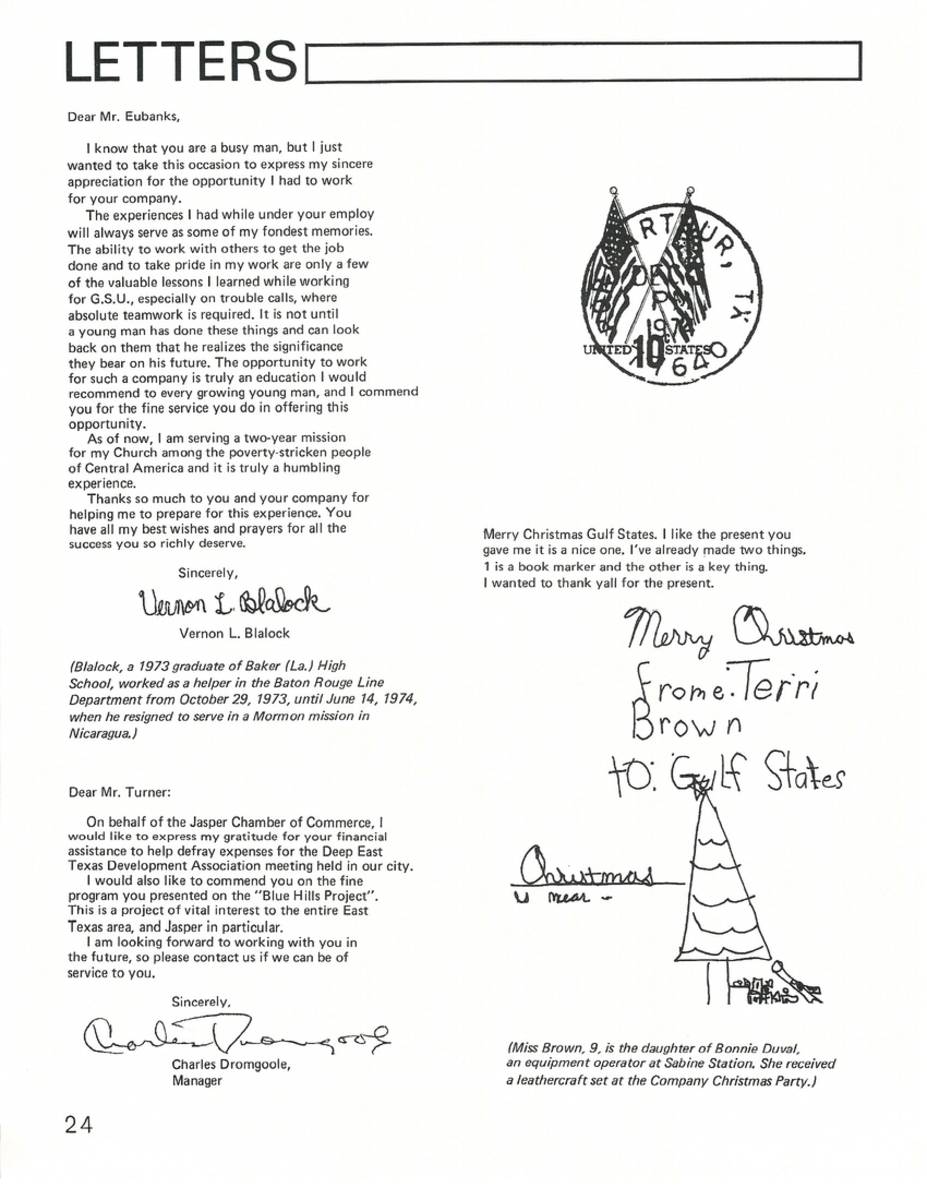 LETTERS
Dear Mr. Eubanks,
I know that you are a busy man, but I just
wanted to take this occasion to express my sincere
appreciation for the opportunity I had to work
for your company.
The experiences I had while under your employ
will always serve as some of my fondest memories.
The ability to work with others to get the job
done and to take pride in my work are only a few
of the valuable lessons I learned while working
for G.S.U., especially on trouble calls, where
absolute teamwork is required. It is not until
a young man has done these things and can look
back on them that he realizes the significance
they bear on his future. The opportunity to work
for such a company is truly an education I would
recommend to every growing young man, and I commend
you for the fine service you do in offering this
opportunity.
As of now, I am serving a two-year mission
for my Church among the poverty-stricken people
of Central America and it is truly a humbling
experience.
Thanks so much to you and your company for
helping me to prepare for this experience. You
have all my best wishes and prayers for all the
success you so richly deserve.
Sincerely,
Vernon L. Blalock
Vernon L. Blalock
(Blalock, a 1973 graduate of Baker (La.) High
School, worked as a helper in the Baton Rouge Line
Department from October 29, 1973, until June 14, 1974,
when he resigned to serve in a Mormon mission in
Nicaragua.)
Dear Mr. Turner:
On behalf of the Jasper Chamber of Commerce, I
would like to express my gratitude for your financial
assistance to help defray expenses for the Deep East
Texas Development Association meeting held in our city.
I would also like to commend you on the fine
program you presented on the "Blue Hills Project".
This is a project of vital interest to the entire East
Texas area, and Jasper in particular.
I am looking forward to working with you in
the future, so please contact us if we can be of
service to you.
Sincerely,
Charles Dromgoole
Charles Dromgoole,
Manager
24
TX
PM
1974
UNITED 10c STATES
Merry Christmas Gulf States. I like the present you
gave me it is a nice one. I've already made two things.
1 is a book marker and the other is a key thing.
I wanted to thank yall for the present.
Merry Christmas
frome: Terri
Brown
to: Gulf States
Christmas
is near
(Miss Brown, 9, is the daughter of Bonnie Duval,
an equipment operator at Sabine Station. She received
a leathercraft set at the Company Christmas Party.)